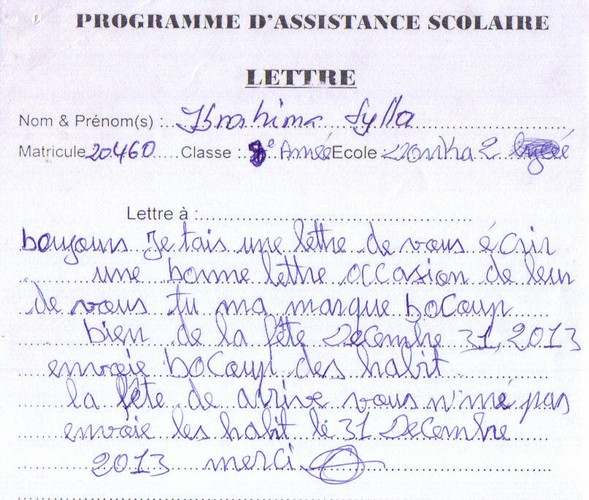 PROGRAMME D'ASSISTANCE SCOLAIRE
LETTRE
Nom & Prénom(s) : Ibrahima Sylla
Matricule 20460 Classe : 8e Année Ecole Donka 2 lyceé
Lettre à :
boujouns Je tais une lettre de vous écrir
une bonne lettre occasion de leur
de vous tu ma marque boCoup
bien de la fête Decembre 31, 2013
envoie boCoup des habit
la fête de adrive vous n'mé pas
envoie les habit le 31 Decembre
2013 merci